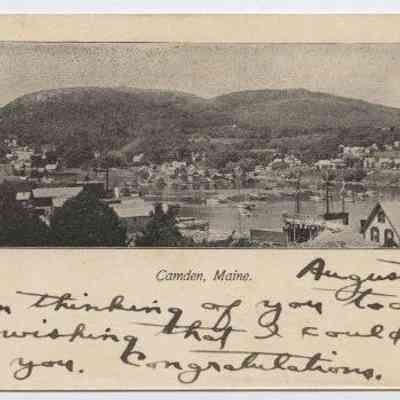 Camden, Maine.
Augus
n thinking of you to
wishing that I could
you. Congratulations.